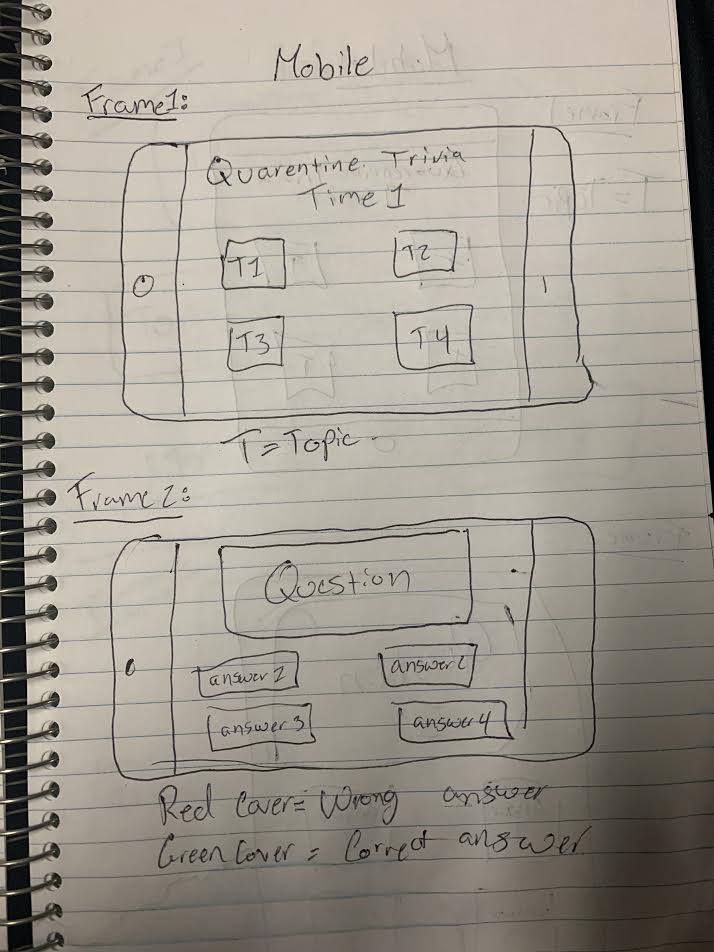 Mobile
Frame1:
Quarentine Trivia
Time 1
T1
T2
T3
T4
T = Topic
Frame 2:
Question
answer 2
answer 2
answer 3
answer 4
Red Cover = Wrong answer
Green Cover = Correct answer